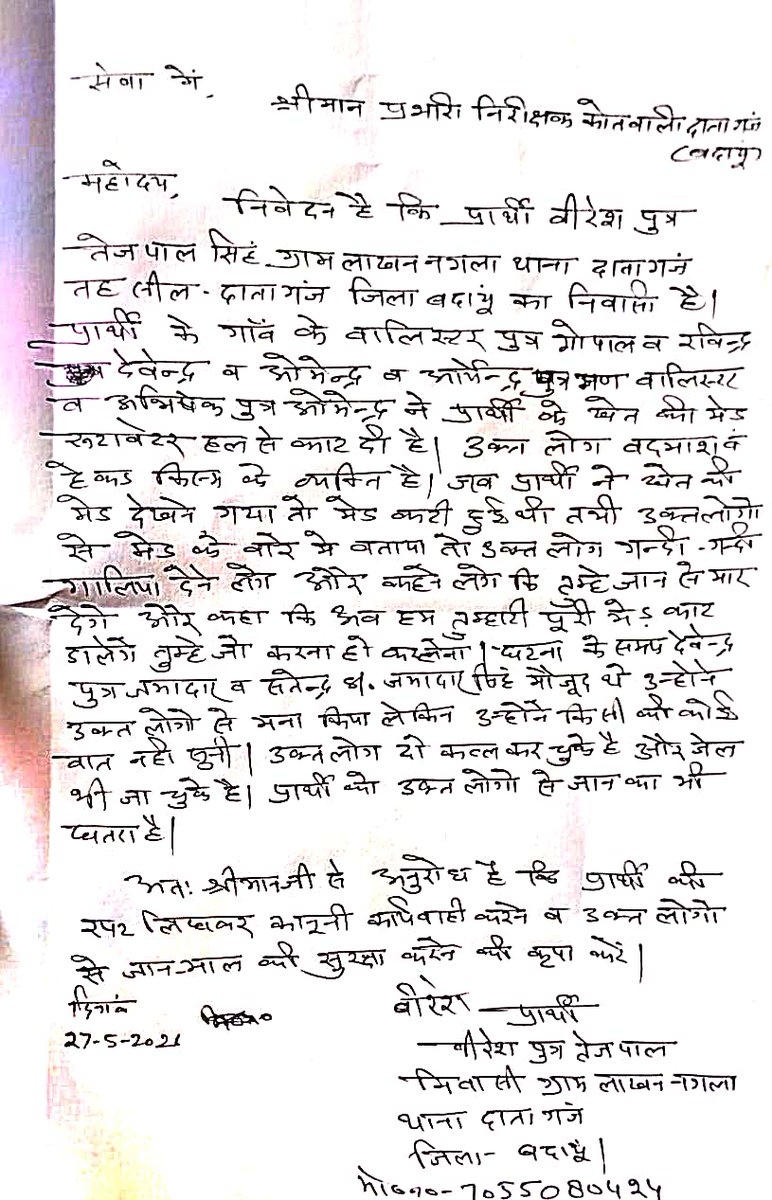 सेवा में,
श्रीमान प्रभारी निरीक्षक कोतवाली दातागंज
(बदायूं)
महोदय,
निवेदन है कि प्रार्थी वीरेश पुत्र
तेजपाल सिहं ग्राम लाखन नगला थाना दातागंज
तहसील - दातागंज जिला बदायूं का निवासी है।
प्रार्थी के गाँव के वालिस्टर पुत्र गोपाल व रविन्द्र
देवेन्द्र व ओमेन्द्र व पुत्र गण वालिस्टर
व अभिषेक पुत्र ओमेन्द्र ने प्रार्थी के खेत की मेड
रूटावेटर हल से काट दी है। उक्त लोग वदमाश व
हेकड किस्म के व्यक्ति है। जव प्रार्थी ने खेत की
मेड देखने गया तो मेड कटी हुई थी तभी उक्त लोगो
से मेड के वारे मे वताया तो उक्त लोग गन्दी - गन्दी
गालिया देने लगे और कहने लगे कि तुम्हे जान से मार
देगे और कहा कि अव हम तुम्हारी पूरी मेड़ काट
डालेगे तुम्हे जो करना हो कर लेना। घटना के समय देवेन्द्र
पुत्र जमादार व सतेन्द्र S/o जमादार सिंह मौजूद थे उन्होने
उक्त लोगो से मना किया लेकिन उन्होने किसी की कोई
वात नही सुनी। उक्त लोग दो कत्ल कर चुके है और जेल
भी जा चुके है। प्रार्थी को उक्त लोगो से जान का भी
खतरा है।
अतः श्रीमानजी से अनुरोध है कि प्रार्थी की
रपट लिखकर कानूनी कार्यवाही करने व उक्त लोगो
से जान-माल की सुरक्षा करने की कृपा करें।
दिनांक
27-5-2021
वीरेश प्रार्थी
वीरेश पुत्र तेजपाल
निवासी ग्राम लाखन नगला
थाना दातागंज
जिला - बदायूं।
मो०न०-7055080424